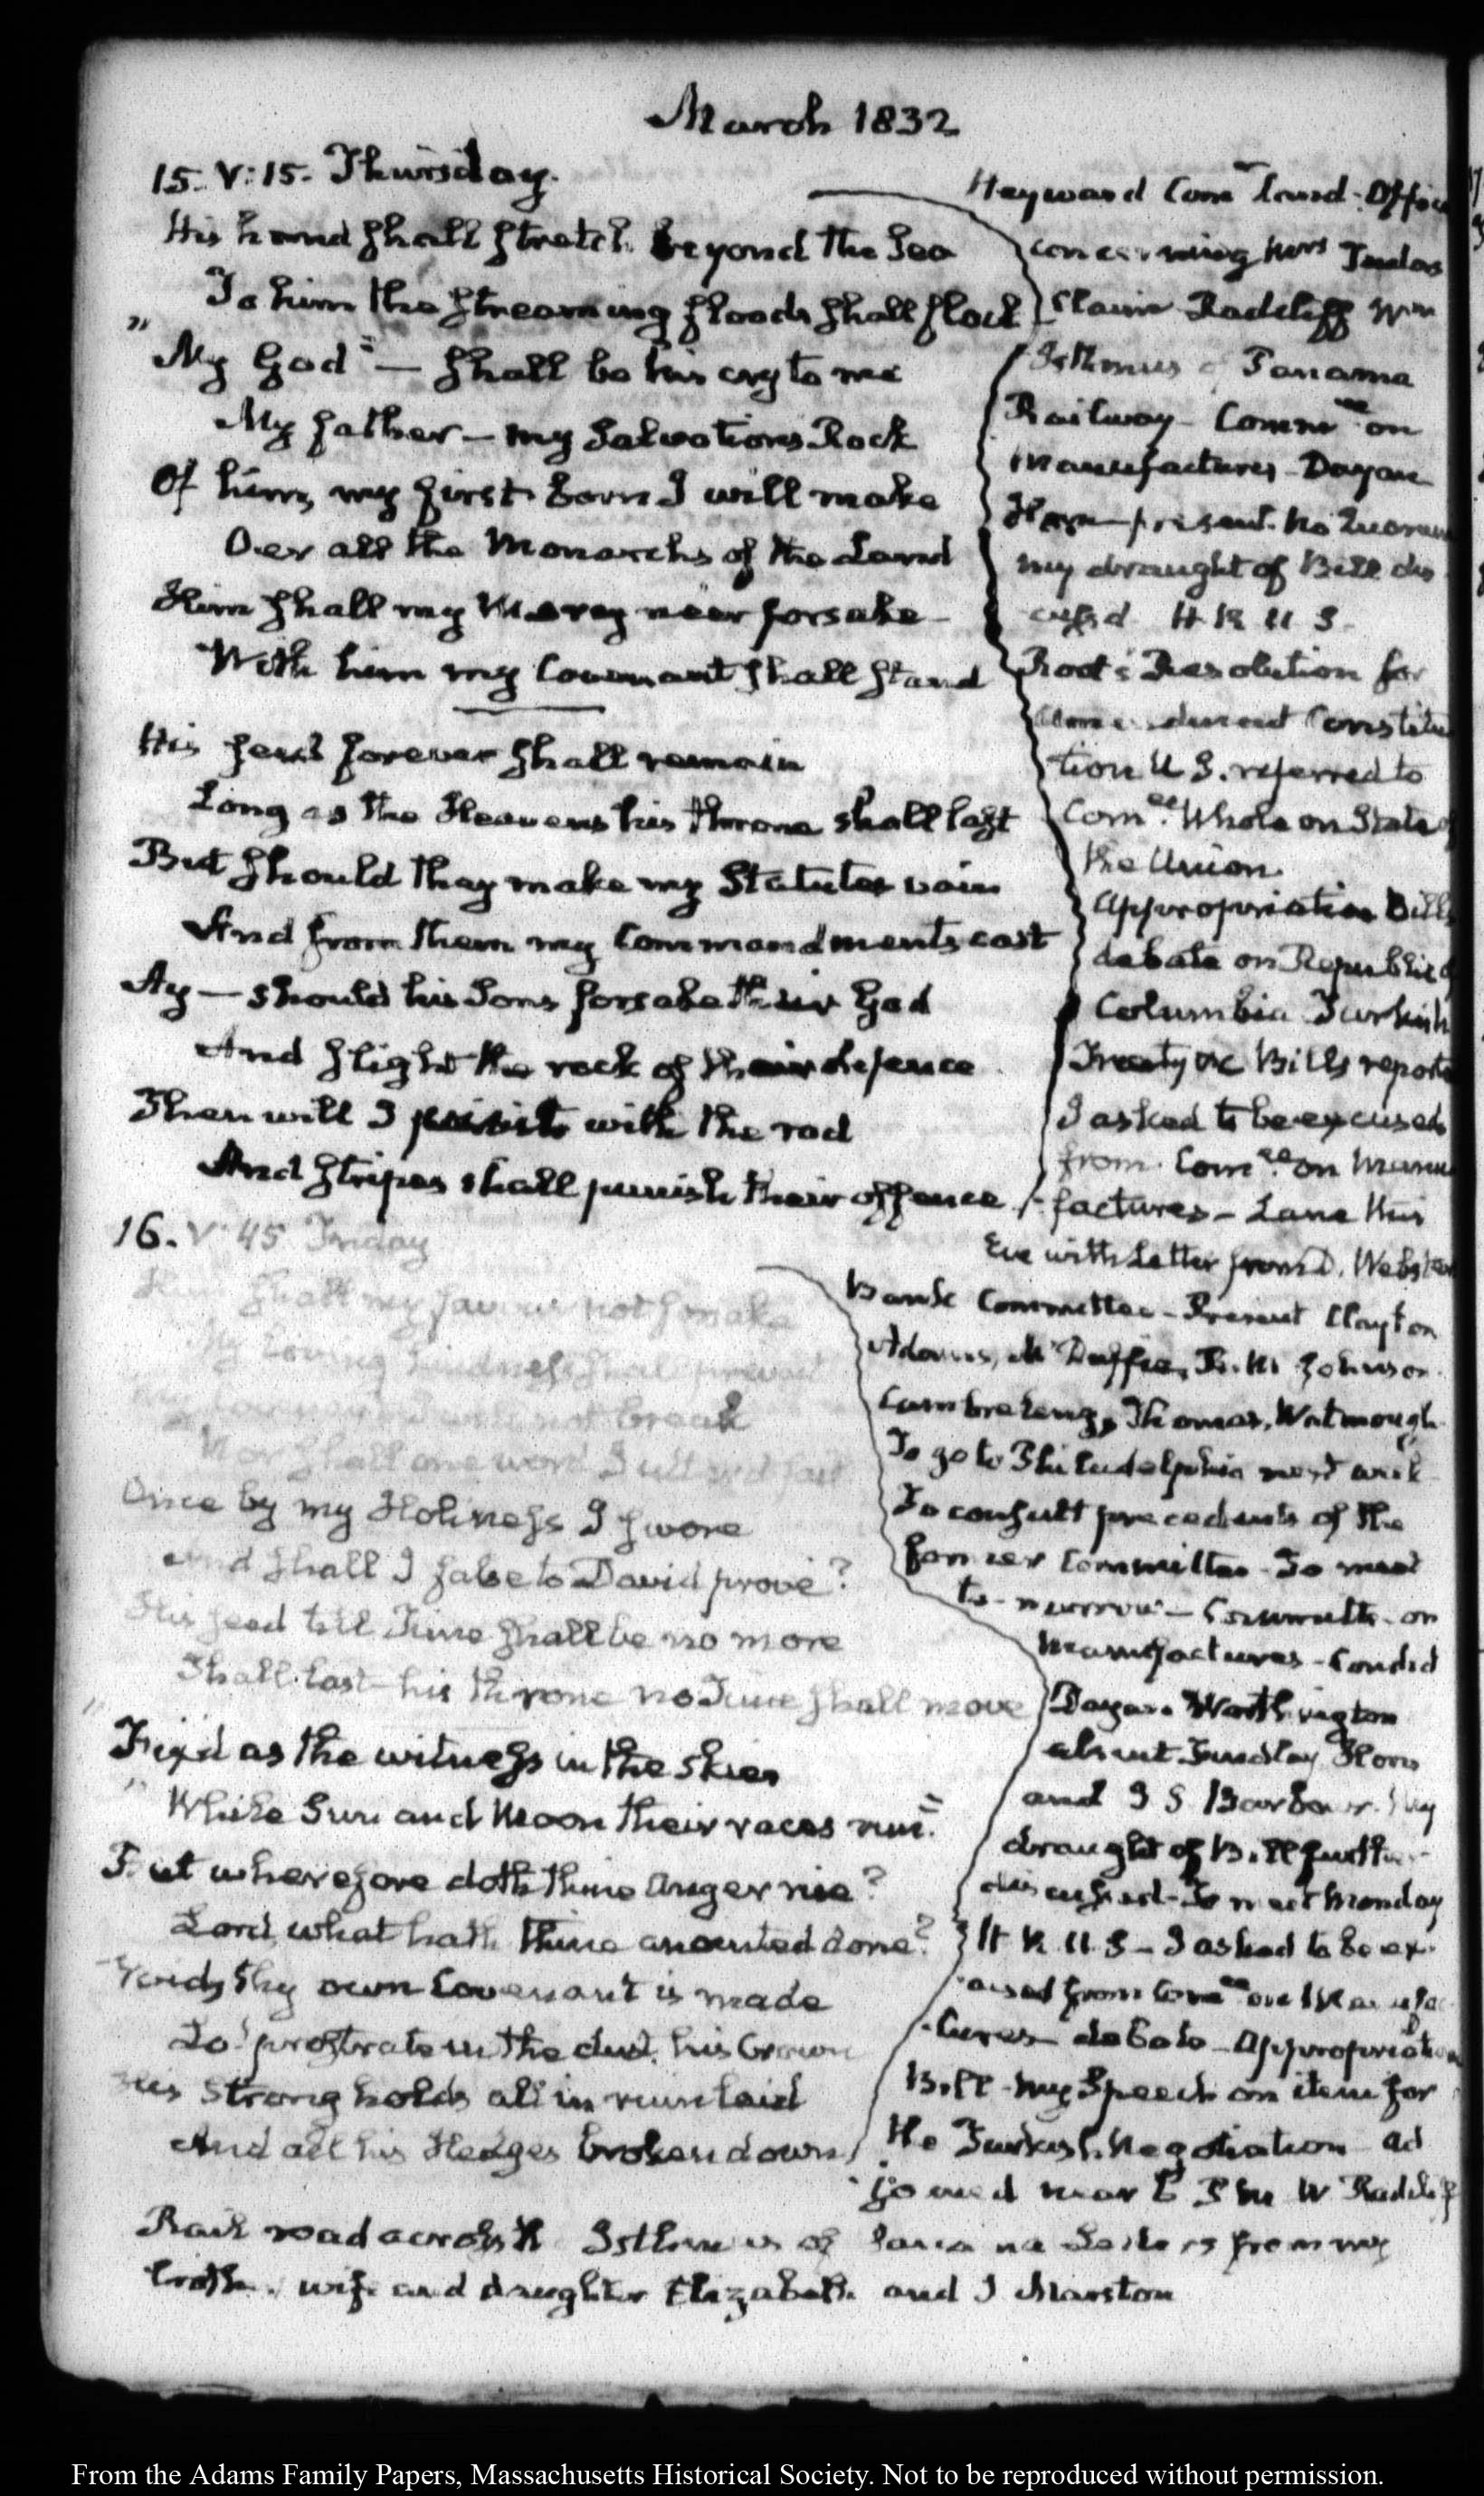 March 1832
15. V:15. Thursday.
His hand shall stretch beyond the Sea
To him the streaming floods shall flock
"My God" — shall be his cry to me
My father — my Salvations Rock
Of him, my first born I will make
Oer all the Monarchs of the Land
Him shall my Mercy neer forsake
With him my Covenant shall stand
His seed forever shall remain
Long as the Heavens his throne shall last
But should they make my Statutes vain
And from them my Commandments cast
Ay — should his Sons forsake their God
And slight the rock of their defence
Then will I with the rod
And stripes shall punish their offence
Heyward Comr Land-Office
concerning Mrs
claim Radcliff Wm
Isthmus of Panama
Railway — Commee on
Manufactures — Dayan
Horn present. No Quorum
my draught of Bill dis
cussed H R U S
Root's Resolution for
amendment Constitu
tion U S. referred to
Comee Whole on State of
the Union.
Appropriation Bill
debate on Republic of
Columbia Turkish
Treaty &c Bills reported
I asked to be excused
from Comee on Manu
factures — Lane this
Eve with Letter from D. Webster
16. V:45 Friday
Him shall my favour not forsake
My loving kindness shall prevail
My covenant I will not break
Nor shall one word I uttered fail
Once by my Holiness I swore
And shall I false to David prove?
His seed till Time shall be no more
Shall last — his throne no Time shall move
"Fix'd as the witness in the skies
"While Sun and Moon their races run."
But wherefore doth thine anger rise?
Lord, what hath thine anointed done?
Void, thy own Covenant is made
Lo! prostrate in the dust, his Crown
His strong holds all in ruin laid
And all his Hedges broken down
Bank Committee — Present Clayton
Adams, McDuffie, R. M. Johnson
Cambreleng, Thomas, Watmough
To go to Philadelphia next week
To consult precedents of the
former Committee — To meet
to-morrow — Committee on
Manufactures — Condict
Dayan Worthington
absent Findlay Horn
and J S Barbour. My
draught of Bill further
discussed — To meet Monday
H R U S — I asked to be ex
cused from Comee on Manufac
tures — debate — Appropriation
Bill — My Speech on item for
the Turkish Negotiation — ad
journed near 5 P M. W Radcliff
Rail road across the Isthmus of Panama Letters from my
wife and daughter Elizabeth and J Marston
From the Adams Family Papers, Massachusetts Historical Society. Not to be reproduced without permission.